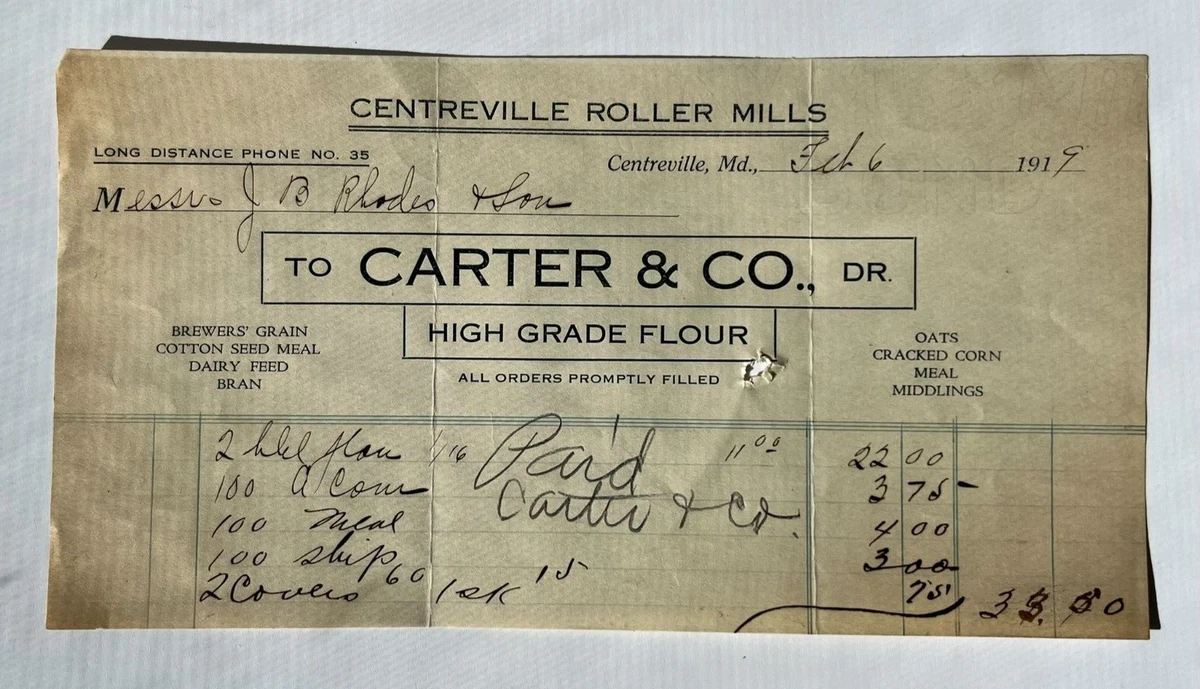 CENTREVILLE ROLLER MILLS
LONG DISTANCE PHONE NO. 35
Centreville, Md., Feb 6 1919
Messrs J B Rhodes & Son
TO CARTER & CO., DR.
HIGH GRADE FLOUR
ALL ORDERS PROMPTLY FILLED
BREWERS' GRAIN
COTTON SEED MEAL
DAIRY FEED
BRAN
OATS
CRACKED CORN
MEAL
MIDDLINGS
2 bbl flour 1/16 11 00 22 00
100 Corn 3 75
100 Meal 4 00
100 ship 3 00
2 Covers 60 1 sk 15 75 33.50
Paid
Carter & Co.